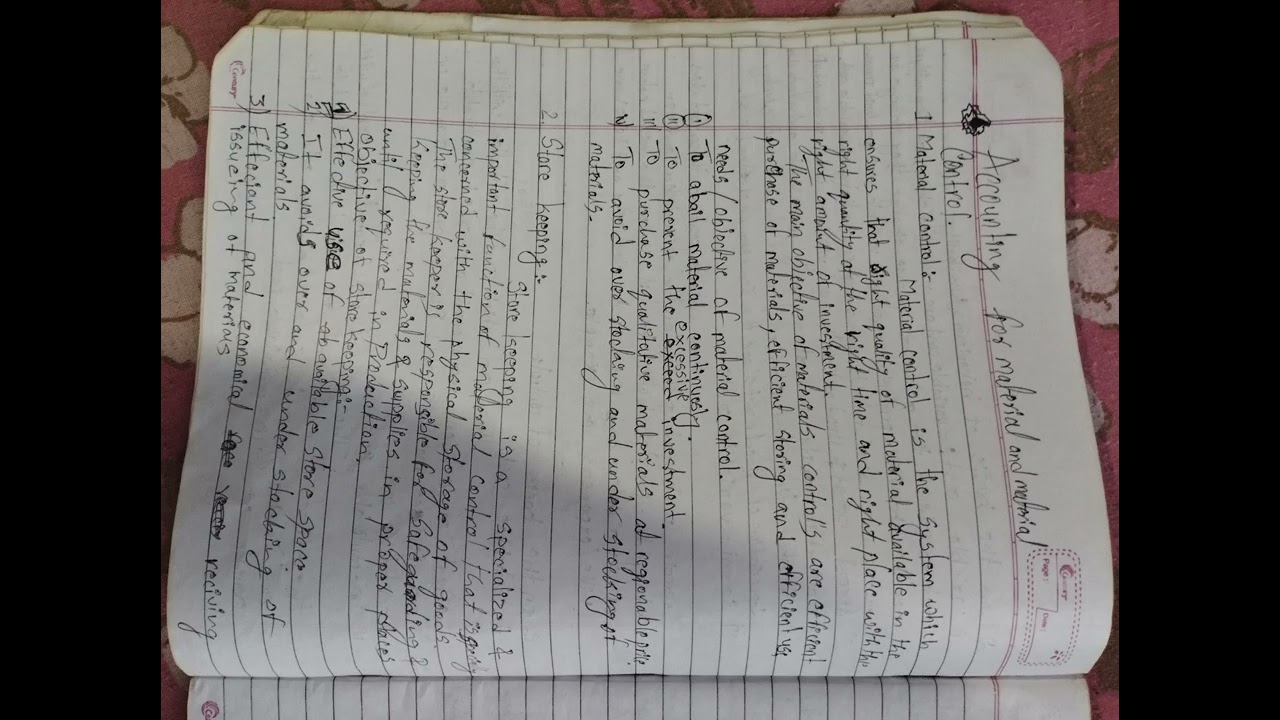 Accounting for material and material
Control.
1 Material control:- Material control is the system which
ensures that right quality of material available in the
right quantity at the right time and right place with the
right amount of investment.
The main objective of materials control's are efficient
purchase of materials, efficient storing and efficient use
needs/objective of material control.
i) To abail material continuesly.
ii) To prevent the excessive investment.
iii) To purchase qualitative materials at regionable price
iv) To avoid over stocking and under stocking of
materials.
2 Store keeping:-
Store keeping is a specialized &
important function of material control that is
concerned with the physical storage of goods.
The store keeper is responsible for safe &
keeping the materials & supplies in proper places
until required in Production.
objective of store keeping:-
1) Effective use of available store space.
2) It avoids over and under stocking of
materials
3) Effecient and economical reciving
issueing of materials
Century
Page:
Date:
Century